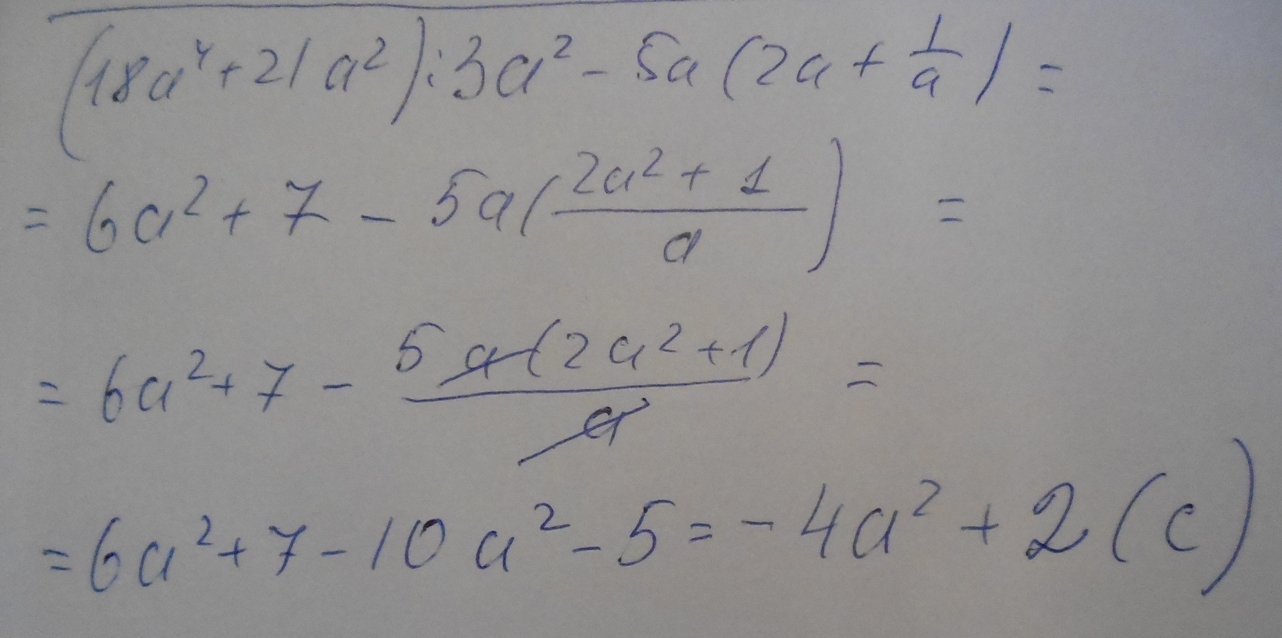 (18a⁴+21a²):3a²-5a(2a+1/a)=
=6a²+7-5a((2a²+1)/a)=
=6a²+7-5a(2a²+1)/a=
=6a²+7-10a²-5=-4a²+2(c)